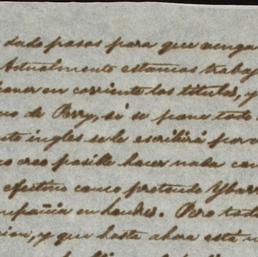 dado pasos para que venga
Actualmente estamos trabaj
en corriente los titulos, y
de Perry, si se pone todo
ingles se le escribirá para
creo posible hacer nada con
efectivo como pretende Ybarr
compañia en Londres. Pero tod
y que hasta ahora esta